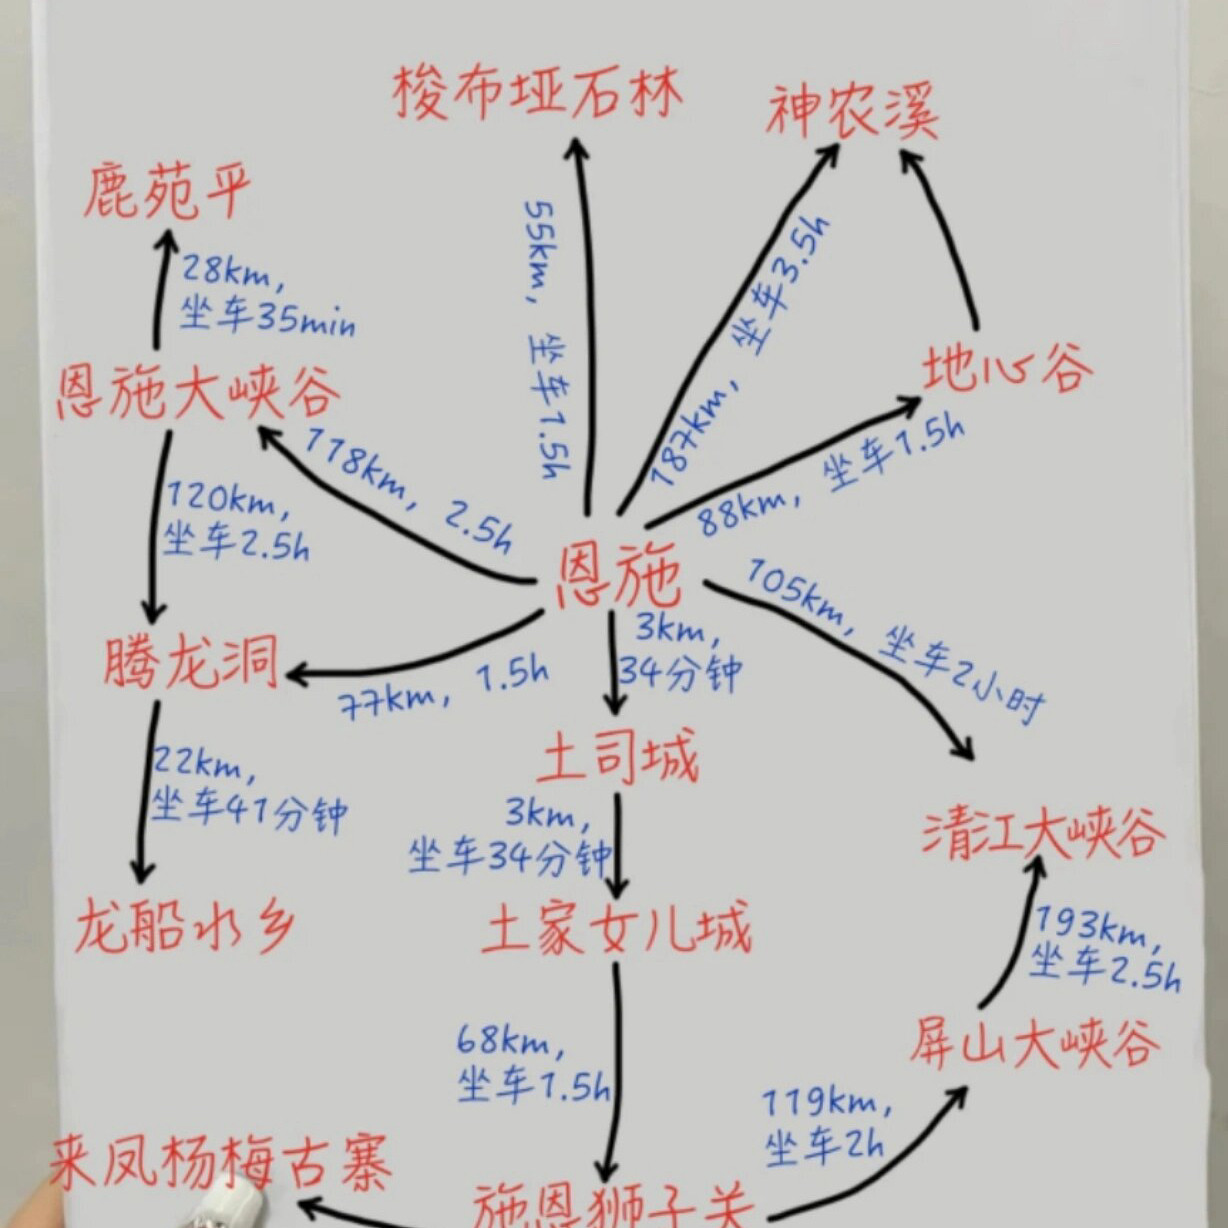 梭布垭石林
神农溪
鹿苑平
28km，
坐车35min
55km，坐车1.5h
187km，坐车3.5h
地心谷
88km，坐车1.5h
恩施大峡谷
118km，2.5h
120km，
坐车2.5h
恩施
105km，坐车2小时
3km，
34分钟
腾龙洞
77km，1.5h
土司城
22km，
坐车41分钟
3km，
坐车34分钟
清江大峡谷
龙船水乡
土家女儿城
193km，
坐车2.5h
屏山大峡谷
68km，
坐车1.5h
119km，
坐车2h
来凤杨梅古寨
施恩狮子关